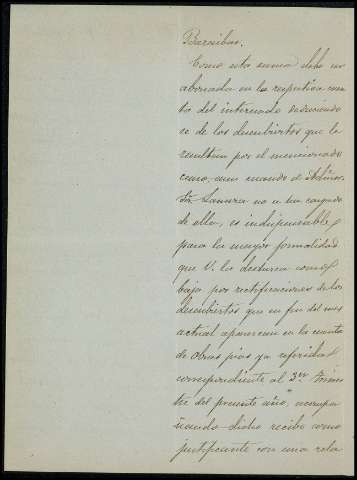 Como esta suma debe ser
abonada en la respectiva cuen
ta del interesado deduciendo
se de los descubiertos que le
resultan por el mencionado
censo, aun cuando el Admor.
Sr. Lanuza no se ha cargado
de ella, es indispensable
para la mayor formalidad
que V. la destine como
bajo por rectificaciones de los
descubiertos que en fin del mes
actual aparecen en la cuenta
de obras pias ya referida
correspondiente al 3er Trimes
tre del presente año, acompa
ñando dicho recibo como
justificante con una rela